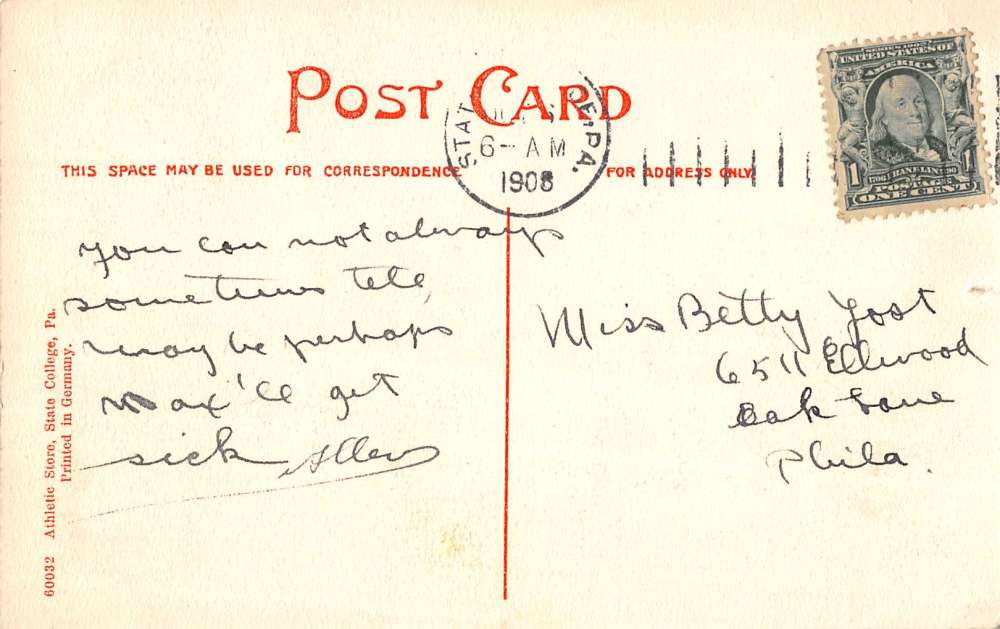 POST CARD
THIS SPACE MAY BE USED FOR CORRESPONDENCE
FOR ADDRESS ONLY
STAT E, PA.
6- AM
1908
SERIES 1902
UNITED STATES OF
AMERICA
FRANKLIN
1 POSTAGE 1
ONE CENT
you can not always
sometimes tele,
may be perhaps
Max'll get
sick Allen
Miss Betty Yost
6511 Ellwood
Oak Lane
Phila.
60032 Athletic Store, State College, Pa.
Printed in Germany.